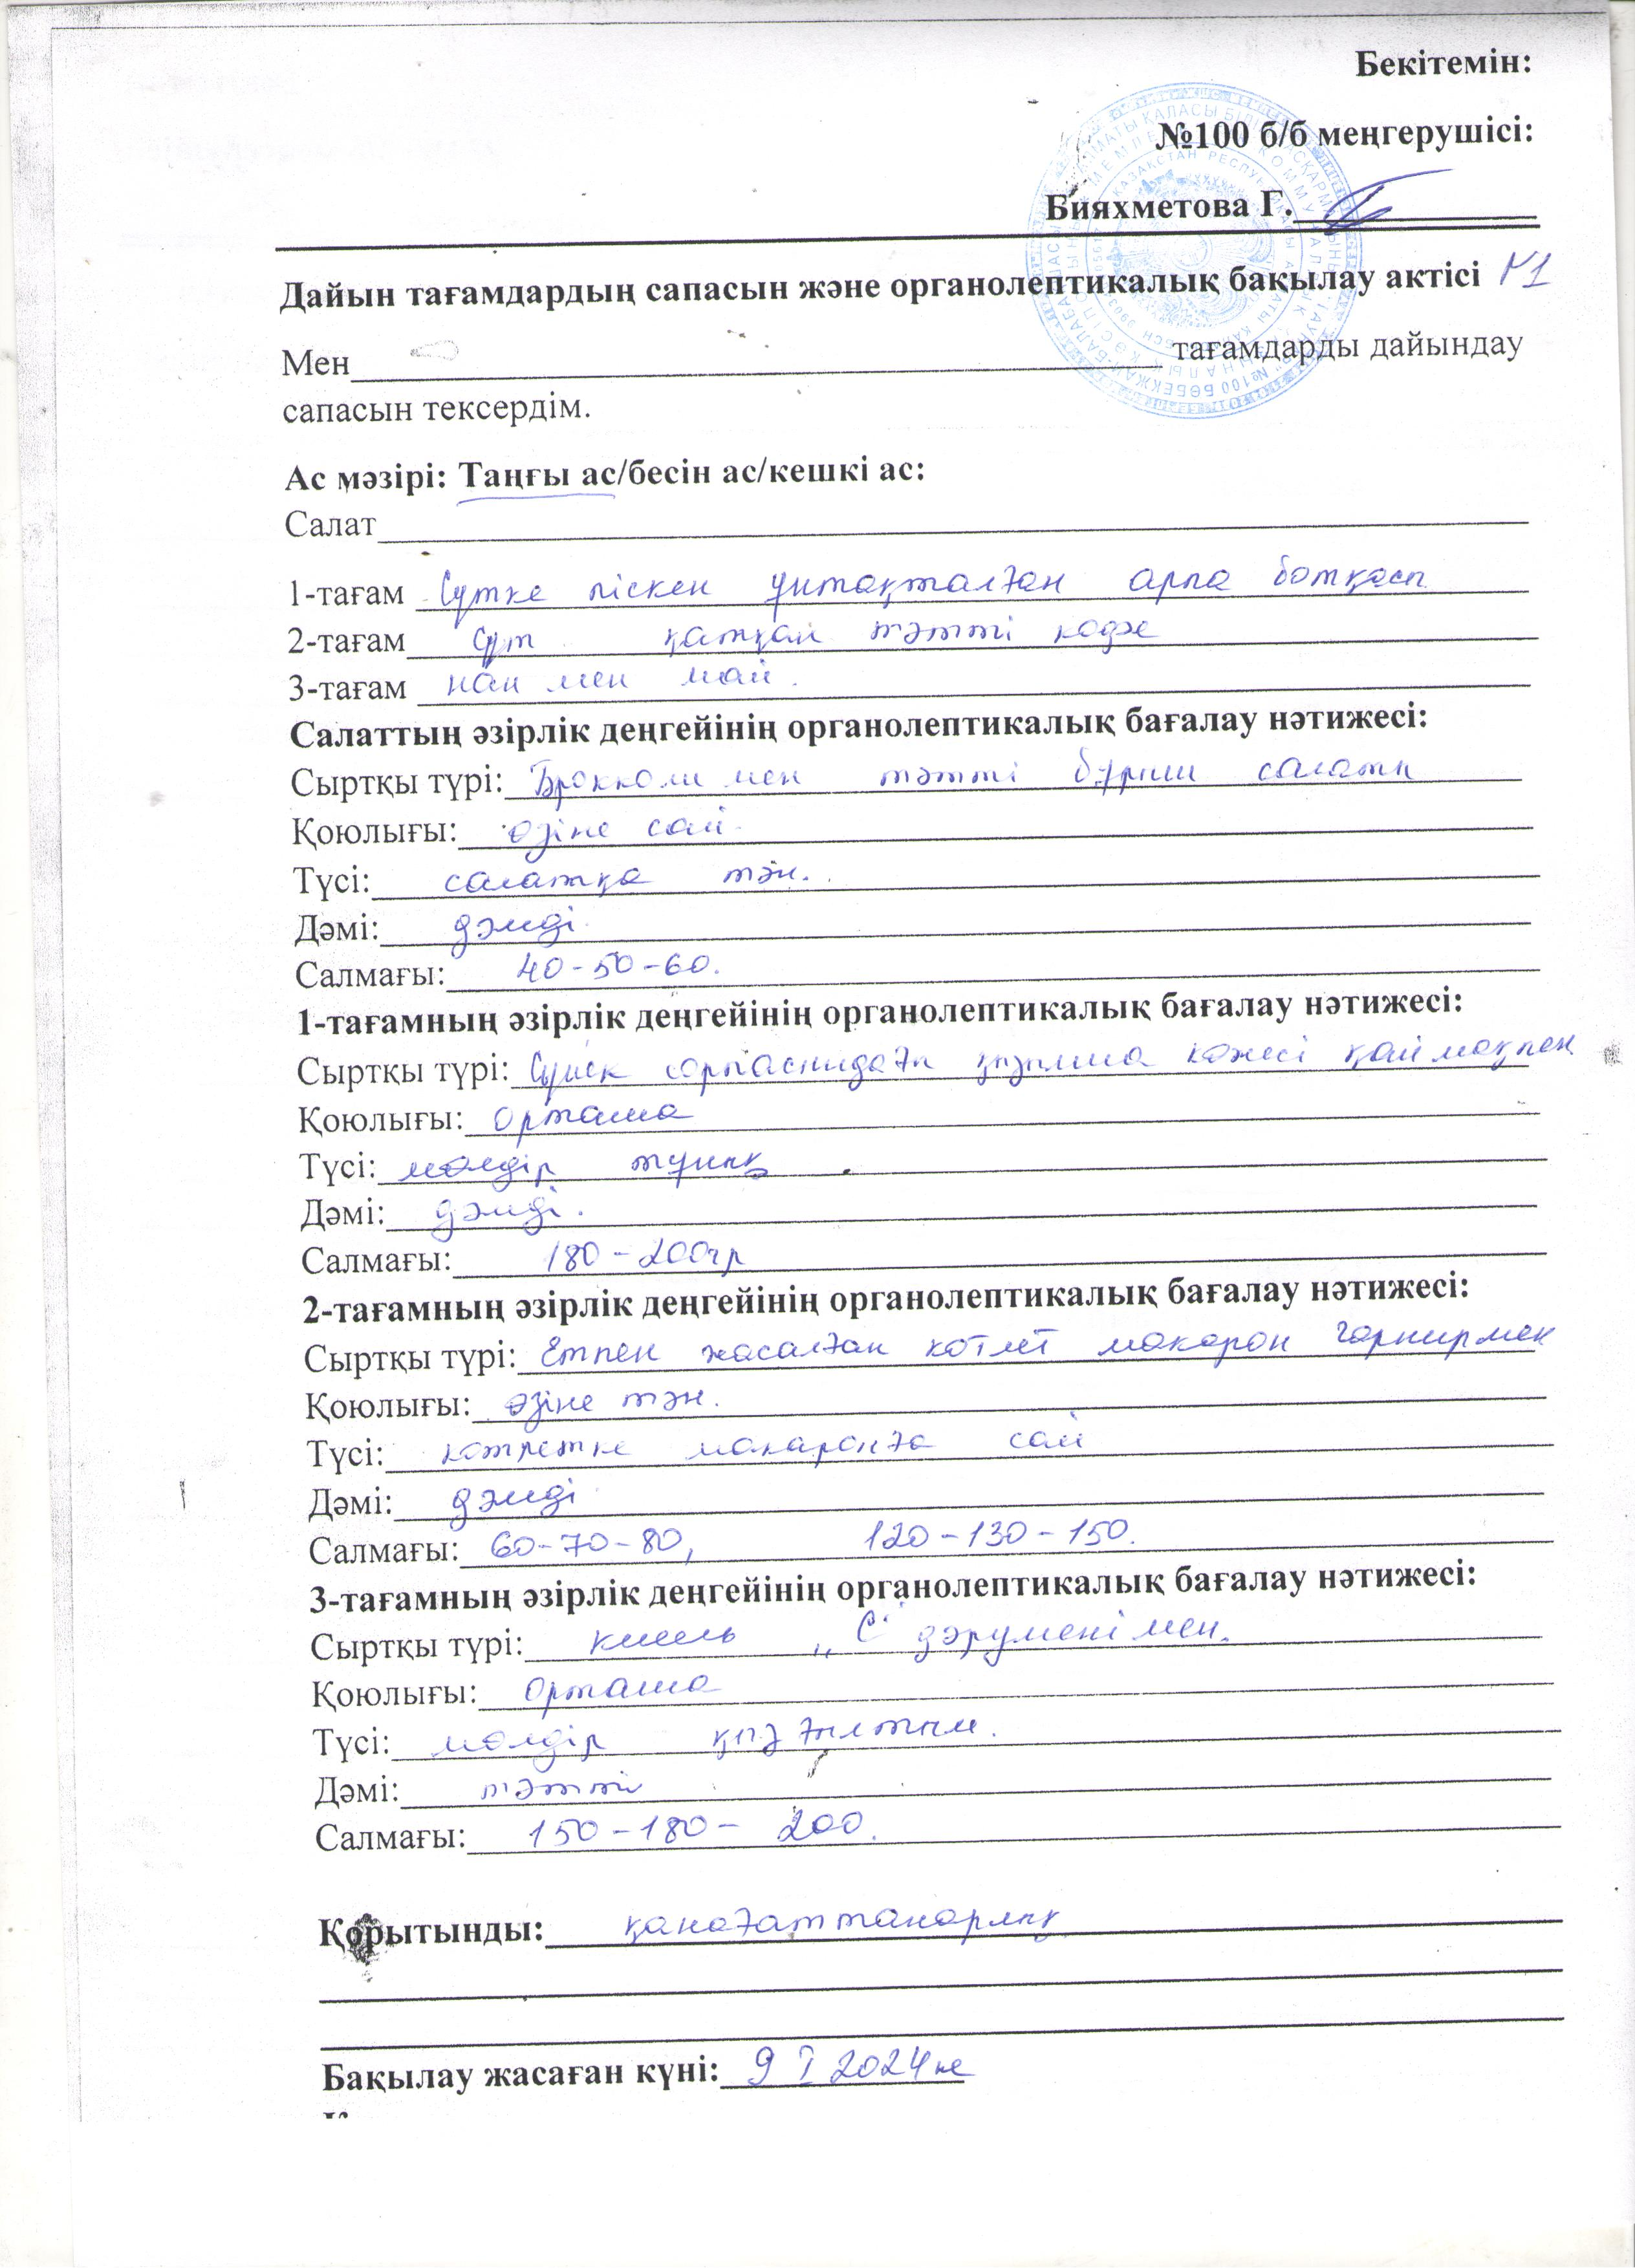 Бекітемін:
№100 б/б меңгерушісі:
Бияхметова Г.
Дайын тағамдардың сапасын және органолептикалық бақылау актісі №1
Мен тағамдарды дайындау
сапасын тексердім.
Ас мәзірі: Таңғы ас/бесін ас/кешкі ас:
Салат
1-тағам Сүтке піскен ұнтақталған арпа ботқасы
2-тағам Сүт қатқан тәтті көже
3-тағам нан мен май.
Салаттың әзірлік деңгейінің органолептикалық бағалау нәтижесі:
Сыртқы түрі: Брокколи мен тәтті бұрыш салаты
Қоюлығы: өзіне сай.
Түсі: салатқа тән.
Дәмі: дәмді.
Салмағы: 40-50-60.
1-тағамның әзірлік деңгейінің органолептикалық бағалау нәтижесі:
Сыртқы түрі: Сүйек сорпасындағы қызылша көжесі қаймақпен
Қоюлығы: орташа
Түсі: мөлдір тұнық
Дәмі: дәмді.
Салмағы: 180-200гр
2-тағамның әзірлік деңгейінің органолептикалық бағалау нәтижесі:
Сыртқы түрі: Етпен жасалған котлет макарон гарнирмен
Қоюлығы: өзіне тән.
Түсі: котлетке макаронға сай
Дәмі: дәмді
Салмағы: 60-70-80, 120-130-150.
3-тағамның әзірлік деңгейінің органолептикалық бағалау нәтижесі:
Сыртқы түрі: кисель „С" дәруменімен.
Қоюлығы: орташа
Түсі: мөлдір қызғылтым.
Дәмі: тәтті
Салмағы: 150-180-200.
Қорытынды: қанағаттанарлық
Бақылау жасаған күні: 9 I 2024 ж